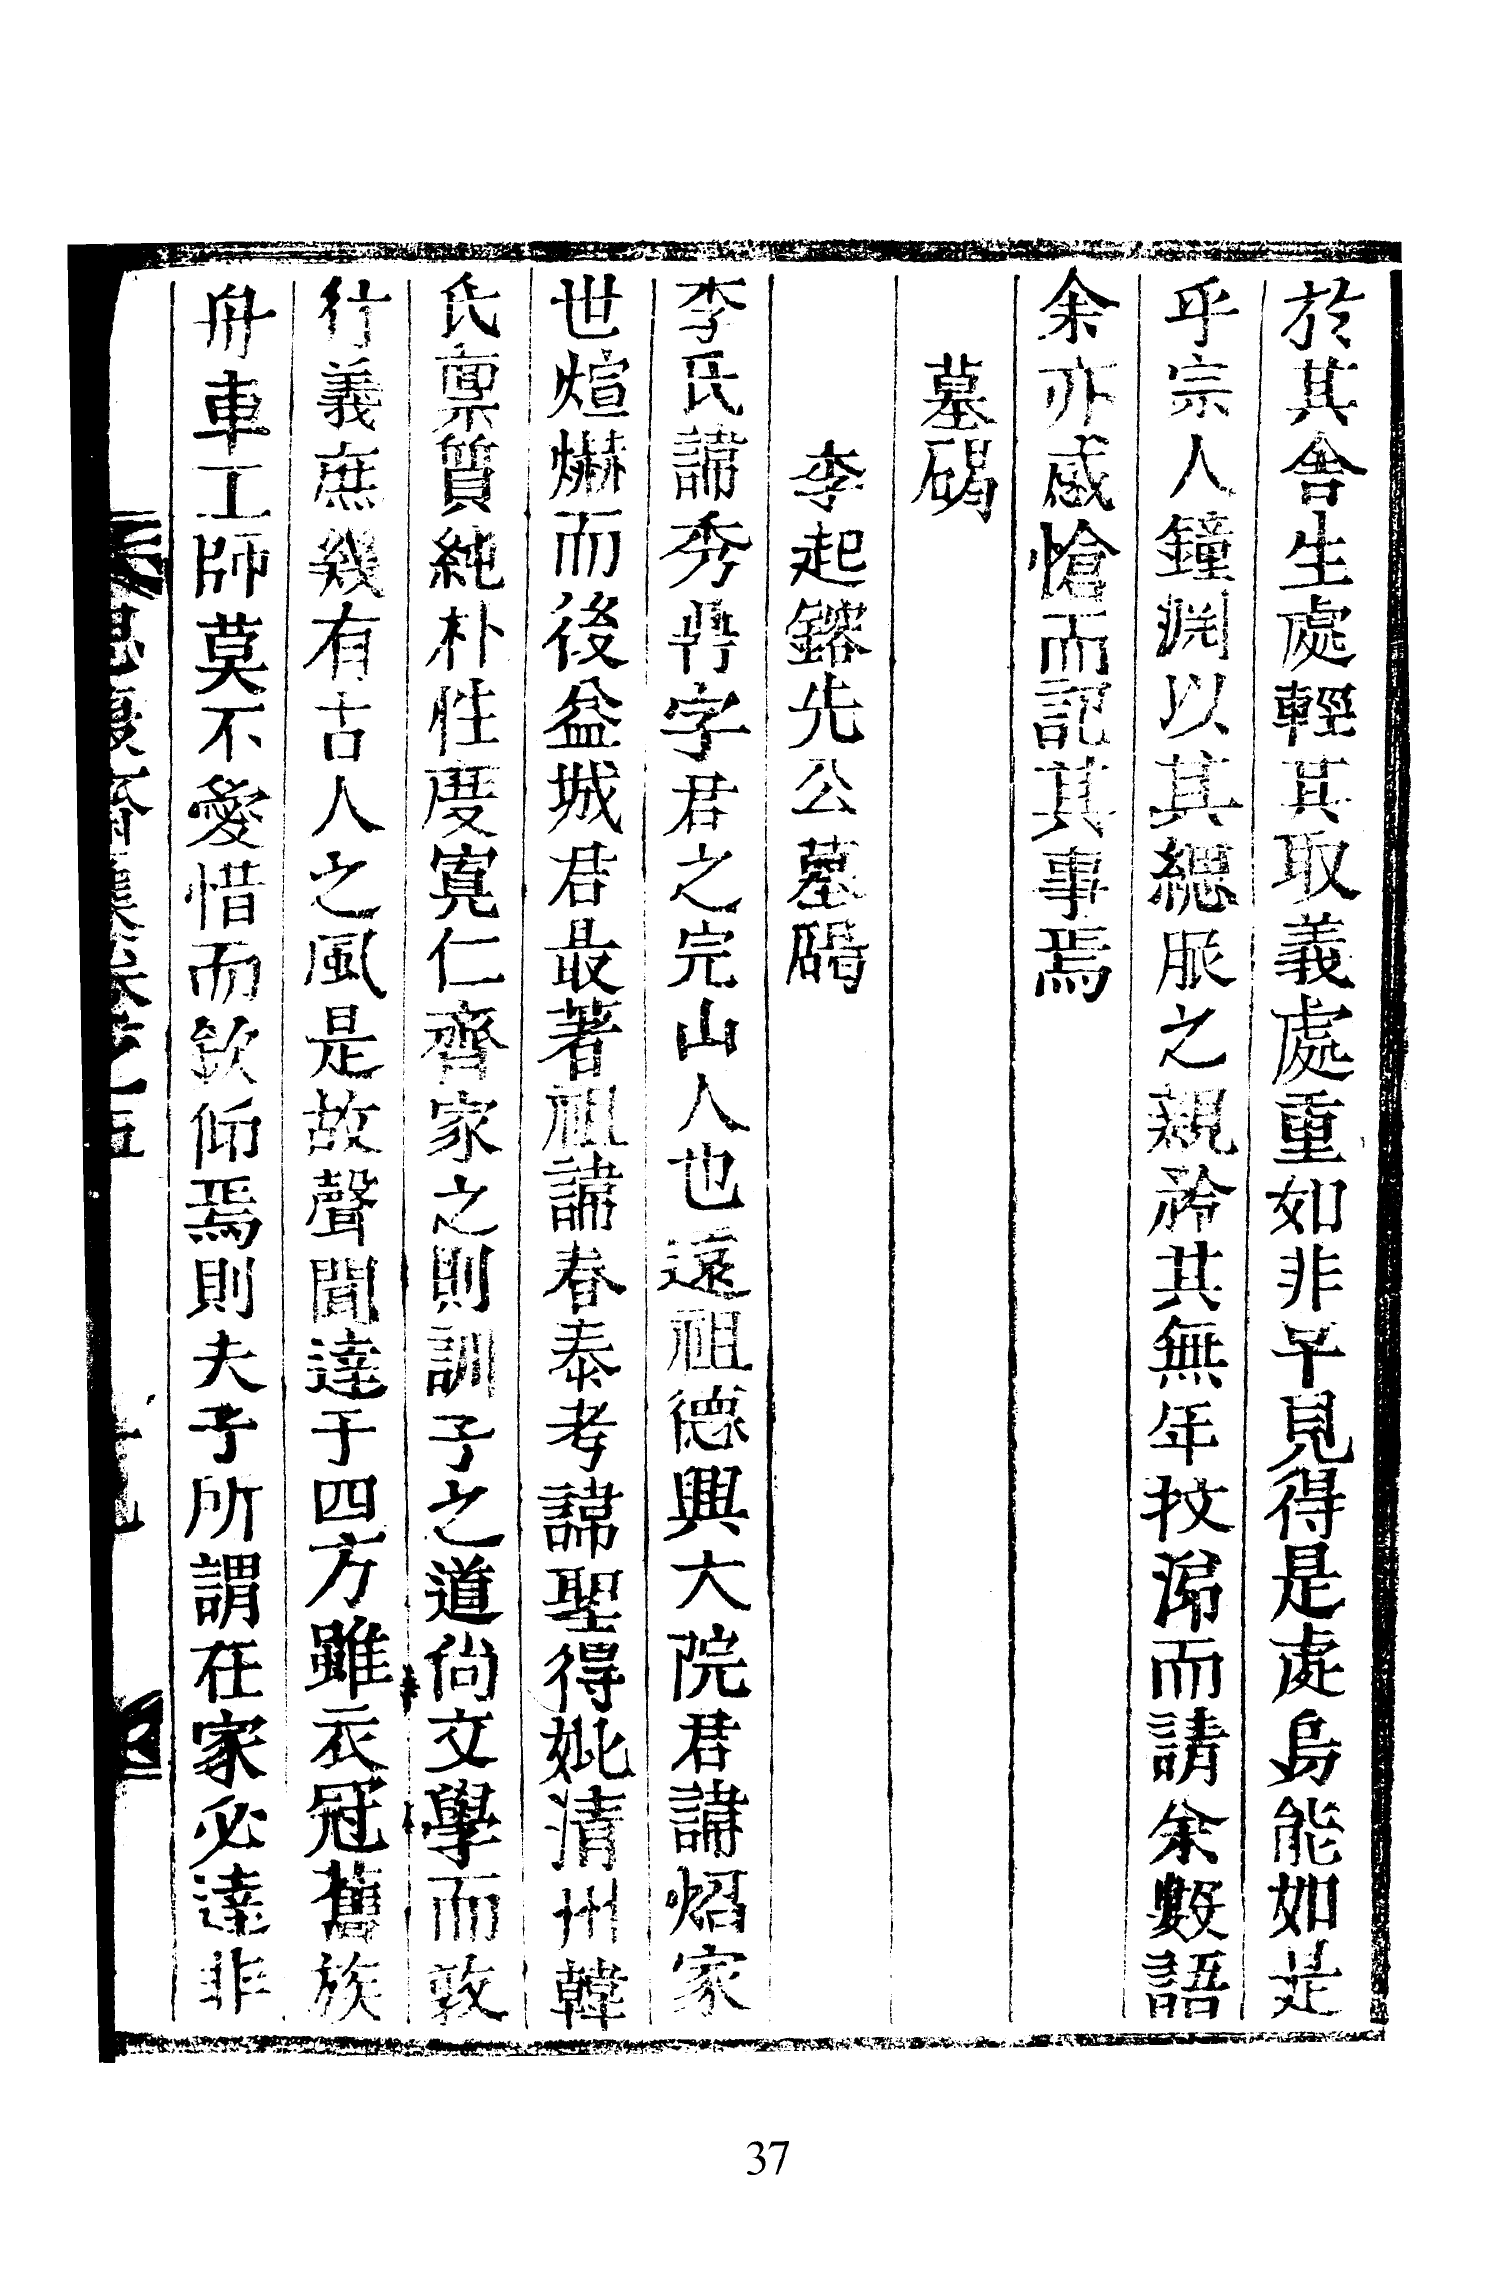 於其舍生處輕其取義處重如非早見得是處烏能如是
乎宗人鐘淵以其緦服之親矜其無年抆涕而請余數語
余亦感愴而記其事焉
墓碣
李起鎔先公墓碣
李氏諱秀鼎字君之完山人也遠祖德興大院君諱炤家
世煊爀而後益城君最著祖諱春泰考諱聖得妣清州韓
氏稟質純朴性度寬仁齊家之則訓子之道尙文學而敦
行義庶幾有古人之風是故聲聞達于四方雖衣冠舊族
舟車工師莫不愛惜而欽仰焉則夫子所謂在家必達非
思復齋集卷之五
37